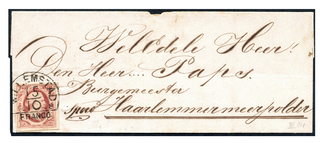 WelEdele Heer!
Den Heer.... Paps.
Burgemeester
Haarlemmermeerpolder
WILLEMSTAD
5/10
FRANCO